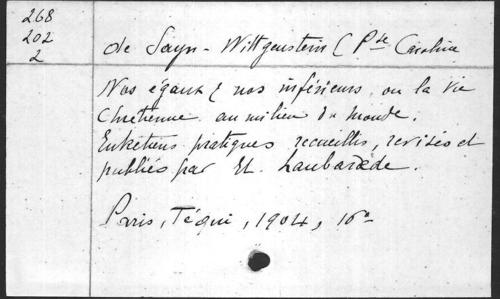 268
202
2
de Sayn-Wittgenstein (Psse Carolina
Nos égaux & nos inférieurs ou la vie
Chrétienne au milieu du monde.
Entretiens pratiques recueillis, revisés et
publiés par H. Lambarède.
Paris, Téqui, 1904, 16o